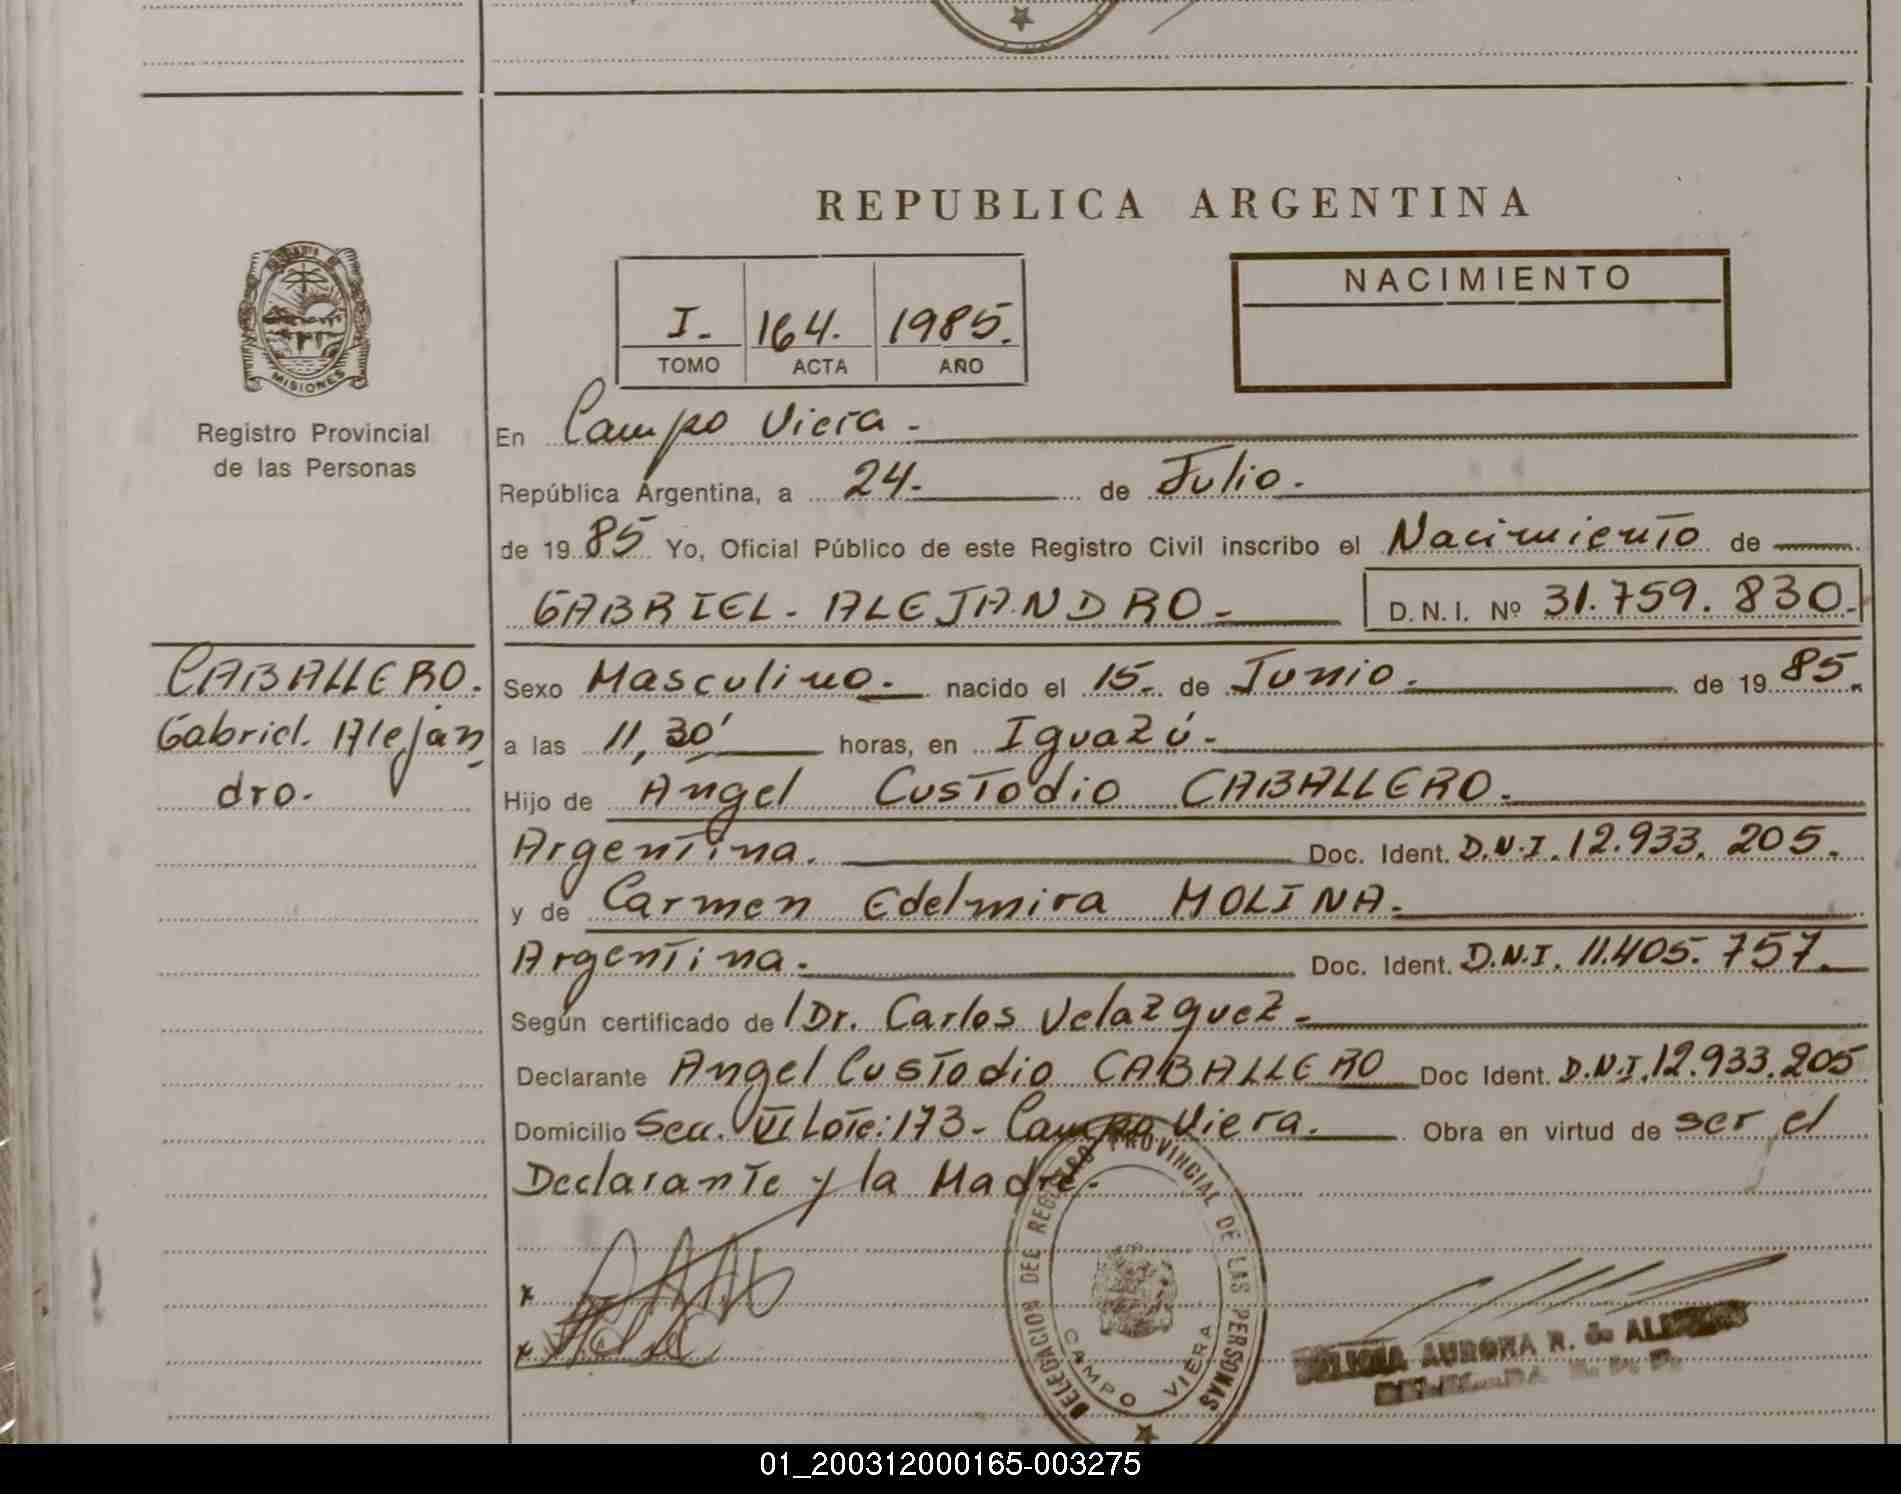 REPUBLICA ARGENTINA
NACIMIENTO
I. 164. 1985.
TOMO ACTA AÑO
MISIONES
Registro Provincial
de las Personas
CABALLERO.
Gabriel. Alejan
dro.
En Campo Viera.
República Argentina, a 24. de Julio.
de 1985 Yo, Oficial Público de este Registro Civil inscribo el Nacimiento de
GABRIEL. ALEJANDRO. D.N.I. Nº 31.759.830.
Sexo Masculino. nacido el 15. de Junio. de 1985.
a las 11,30' horas, en Iguazú.
Hijo de Angel Custodio CABALLERO.
Argentina. Doc. Ident. D.N.I. 12.933.205.
y de Carmen Edelmira MOLINA.
Argentina. Doc. Ident. D.N.I. 11.405.757.
Según certificado de Dr. Carlos Velazquez.
Declarante Angel Custodio CABALLERO Doc Ident. D.N.I. 12.933.205
Domicilio Secc. VI Lote: 173- Campo Viera. Obra en virtud de ser el
Declarante y la Madre.
DELEGACION DEL REGISTRO PROVINCIAL DE LAS PERSONAS
CAMPO VIERA
AURORA R. de
01_200312000165-003275